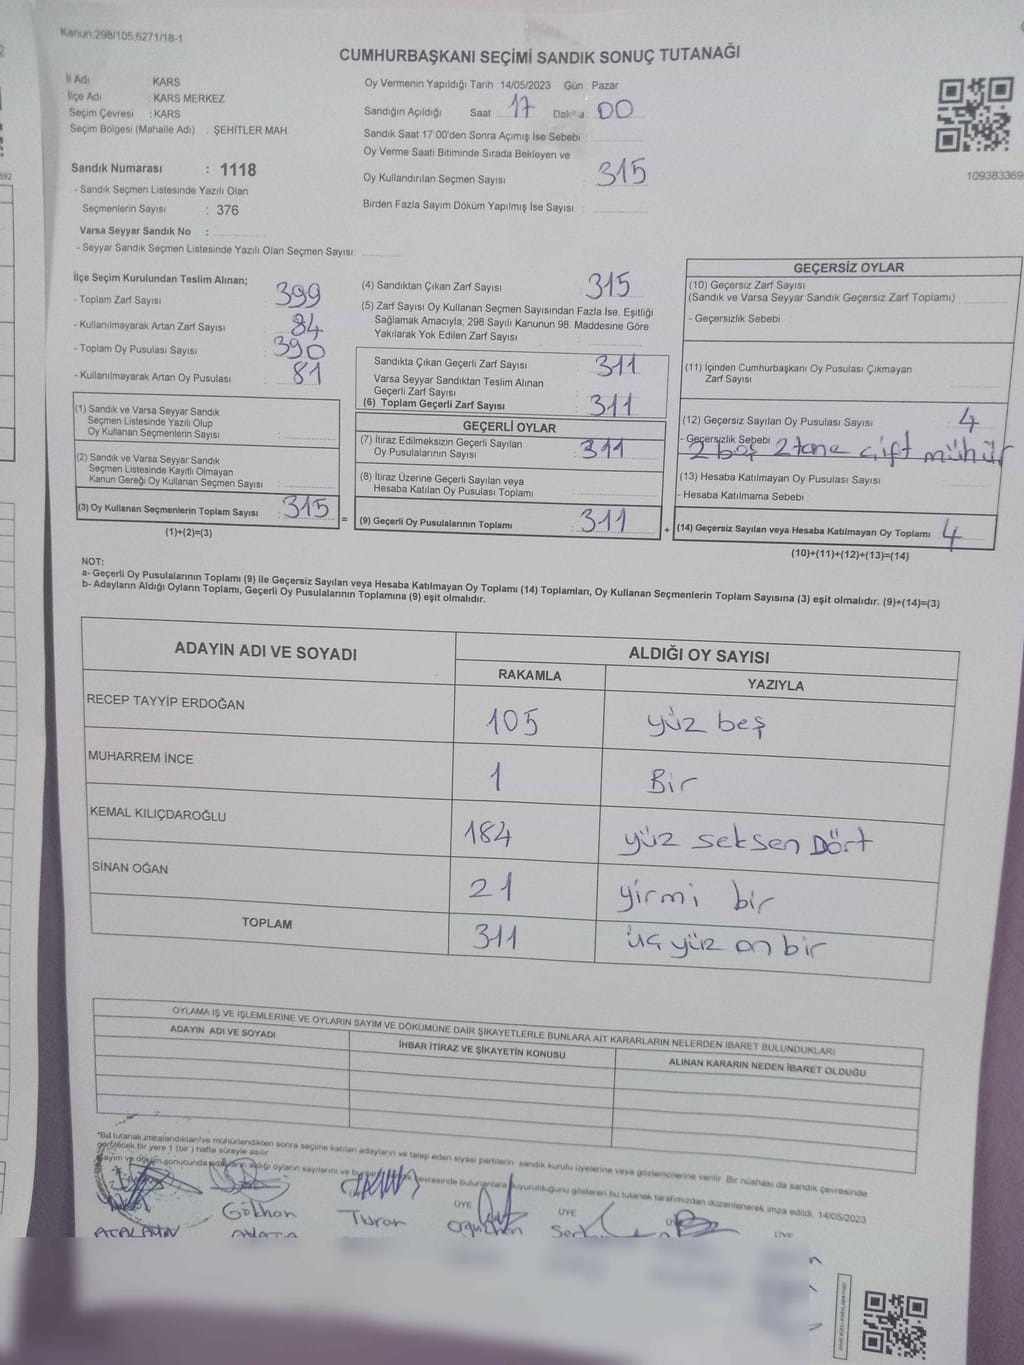 Kanun:298/105,6271/18-1
CUMHURBAŞKANI SEÇİMİ SANDIK SONUÇ TUTANAĞI
İl Adı : KARS
İlçe Adı : KARS MERKEZ
Seçim Çevresi : KARS
Seçim Bölgesi (Mahalle Adı) : ŞEHİTLER MAH.
Sandık Numarası : 1118
- Sandık Seçmen Listesinde Yazılı Olan
Seçmenlerin Sayısı : 376
Varsa Seyyar Sandık No :
- Seyyar Sandık Seçmen Listesinde Yazılı Olan Seçmen Sayısı:
Oy Vermenin Yapıldığı Tarih : 14/05/2023 Gün : Pazar
Sandığın Açıldığı Saat 17 Dakika 00
Sandık Saat 17:00'den Sonra Açımış İse Sebebi
Oy Verme Saati Bitiminde Sırada Bekleyen ve
Oy Kullandırılan Seçmen Sayısı : 315
Birden Fazla Sayım Döküm Yapılmış İse Sayısı :
109383369
İlçe Seçim Kurulundan Teslim Alınan;
- Toplam Zarf Sayısı : 399
- Kullanılmayarak Artan Zarf Sayısı : 84
- Toplam Oy Pusulası Sayısı : 390
- Kullanılmayarak Artan Oy Pusulası : 81
(1) Sandık ve Varsa Seyyar Sandık
Seçmen Listesinde Yazılı Olup
Oy Kullanan Seçmenlerin Sayısı :
(2) Sandık ve Varsa Seyyar Sandık
Seçmen Listesinde Kayıtlı Olmayan
Kanun Gereği Oy Kullanan Seçmen Sayısı :
(3) Oy Kullanan Seçmenlerin Toplam Sayısı : 315
(1)+(2)=(3)
=
(4) Sandıktan Çıkan Zarf Sayısı : 315
(5) Zarf Sayısı Oy Kullanan Seçmen Sayısından Fazla İse, Eşitliği
Sağlamak Amacıyla; 298 Sayılı Kanunun 98. Maddesine Göre
Yakılarak Yok Edilen Zarf Sayısı :
Sandıkta Çıkan Geçerli Zarf Sayısı : 311
Varsa Seyyar Sandıktan Teslim Alınan
Geçerli Zarf Sayısı :
(6) Toplam Geçerli Zarf Sayısı : 311
GEÇERLİ OYLAR
(7) İtiraz Edilmeksizin Geçerli Sayılan
Oy Pusulalarının Sayısı : 311
(8) İtiraz Üzerine Geçerli Sayılan veya
Hesaba Katılan Oy Pusulası Toplamı :
(9) Geçerli Oy Pusulalarının Toplamı : 311
+
GEÇERSİZ OYLAR
(10) Geçersiz Zarf Sayısı
(Sandık ve Varsa Seyyar Sandık Geçersiz Zarf Toplamı) :
- Geçersizlik Sebebi :
(11) İçinden Cumhurbaşkanı Oy Pusulası Çıkmayan
Zarf Sayısı :
(12) Geçersiz Sayılan Oy Pusulası Sayısı : 4
- Geçersizlik Sebebi : 2 boş 2 tane çift mühür
(13) Hesaba Katılmayan Oy Pusulası Sayısı :
- Hesaba Katılmama Sebebi :
(14) Geçersiz Sayılan veya Hesaba Katılmayan Oy Toplamı : 4
(10)+(11)+(12)+(13)=(14)
NOT:
a- Geçerli Oy Pusulalarının Toplamı (9) ile Geçersiz Sayılan veya Hesaba Katılmayan Oy Toplamı (14) Toplamları, Oy Kullanan Seçmenlerin Toplam Sayısına (3) eşit olmalıdır. (9)+(14)=(3)
b- Adayların Aldığı Oyların Toplamı, Geçerli Oy Pusulalarının Toplamına (9) eşit olmalıdır.
ADAYIN ADI VE SOYADI ALDIĞI OY SAYISI
RAKAMLA YAZIYLA
RECEP TAYYİP ERDOĞAN 105 yüz beş
MUHARREM İNCE 1 Bir
KEMAL KILIÇDAROĞLU 184 yüz seksen Dört
SİNAN OĞAN 21 yirmi bir
TOPLAM 311 üç yüz on bir
OYLAMA İŞ VE İŞLEMLERİNE VE OYLARIN SAYIM VE DÖKÜMÜNE DAİR ŞİKAYETLERLE BUNLARA AİT KARARLARIN NELERDEN İBARET BULUNDUKLARI
ADAYIN ADI VE SOYADI İHBAR İTİRAZ VE ŞİKAYETİN KONUSU ALINAN KARARIN NEDEN İBARET OLDUĞU
*Bu tutanak imzalandıktan ve mühürlendikten sonra seçime katılan adayların ve talep eden siyasi partilerin sandık kurulu üyelerine veya gözlemcilerine verilir. Bir nüshası da sandık çevresinde
görülecek bir yere 1 (bir) hafta süreyle asılır.
Sayım ve döküm sonucunda adayların aldığı oyların sayılarını ve çevresinde bulunanlara duyurulduğunu gösteren bu tutanak tarafımızdan düzenlenerek imza edildi. 14/05/2023
ÜYE ÜYE ÜYE ÜYE
Gökhan Turan Oğuzhan